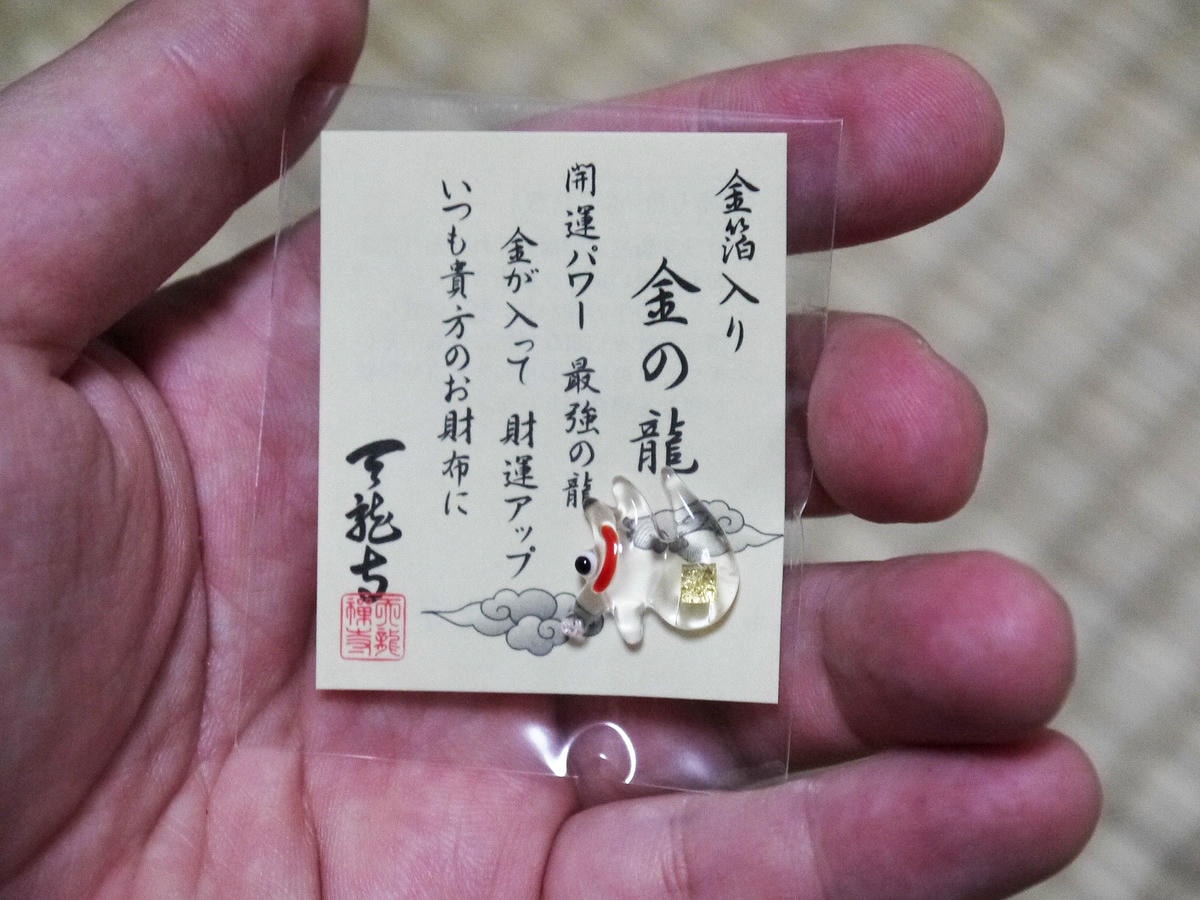 金箔入り
金の龍
開運パワー 最強の龍
金が入って 財運アップ
いつも貴方のお財布に
天龍寺
天龍
禅寺